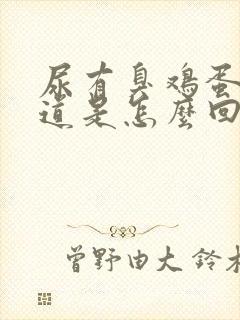 尿有臭鸡蛋
道是怎麼回
曾野由大 鈴木